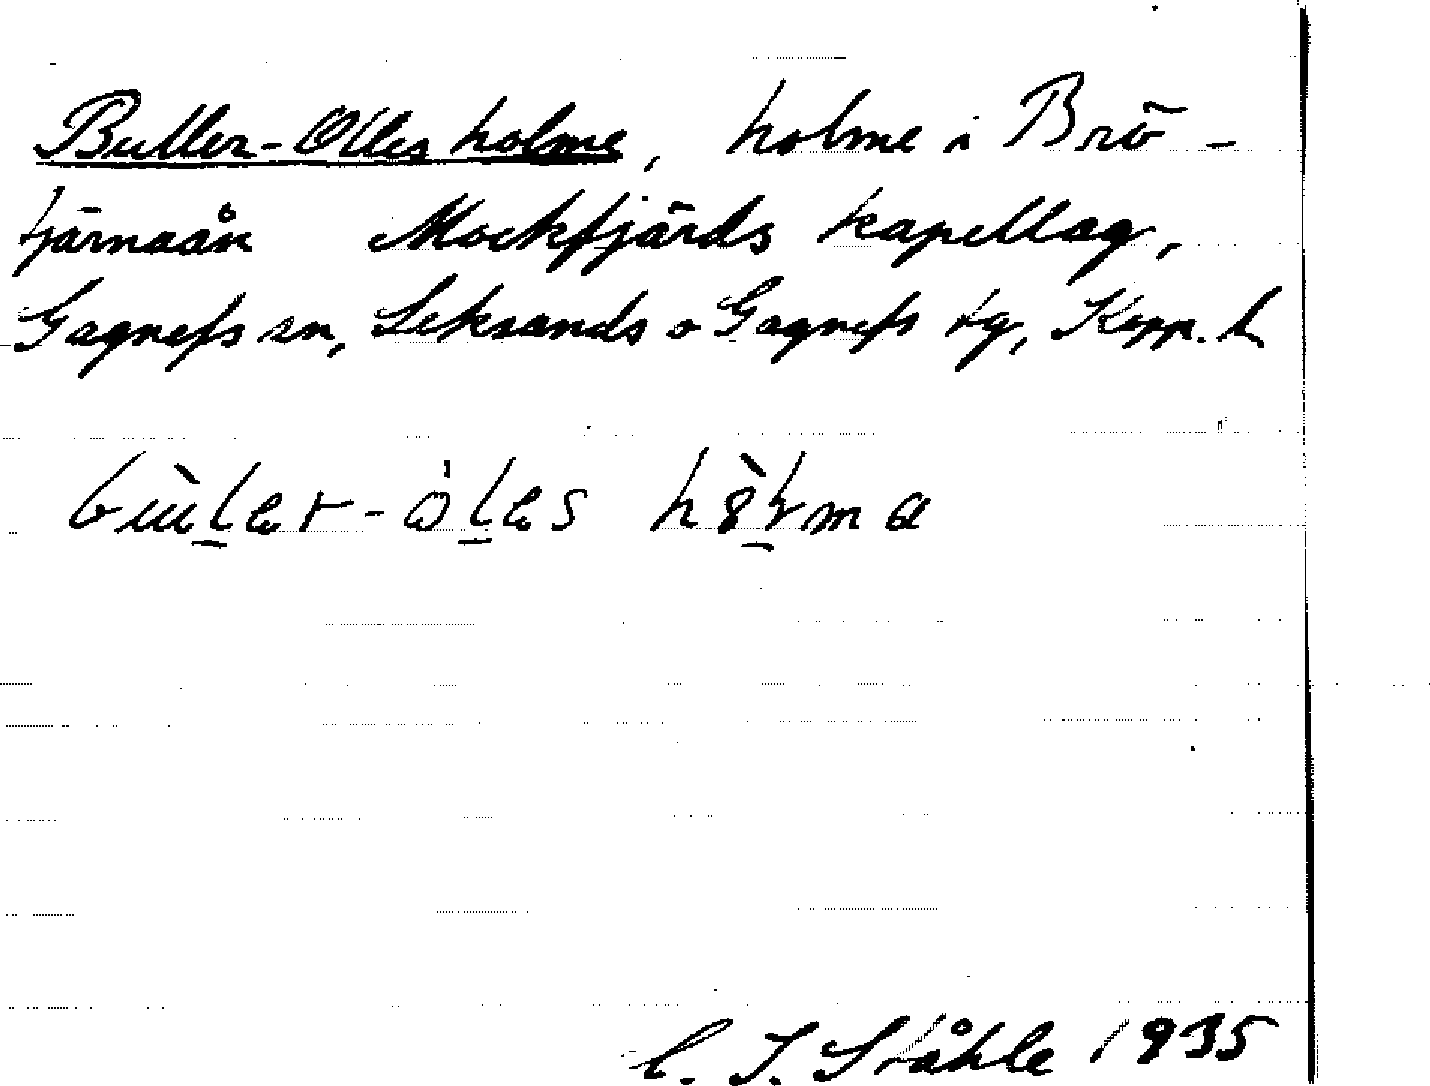 Buller-Olles holme, holme i Brö-
tjärnaån Mockfjärds kapellag,
Gagnefs sn, Leksands o Gagnefs tg, Kopp. l
C. I. Ståhle 1935